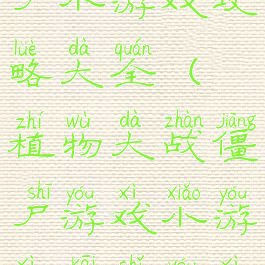 游戏攻
lüè dà quán
略大全（
zhí wù dà zhàn jiāng
植物大战僵
shī yóu xì xiǎo yóu
尸游戏小游